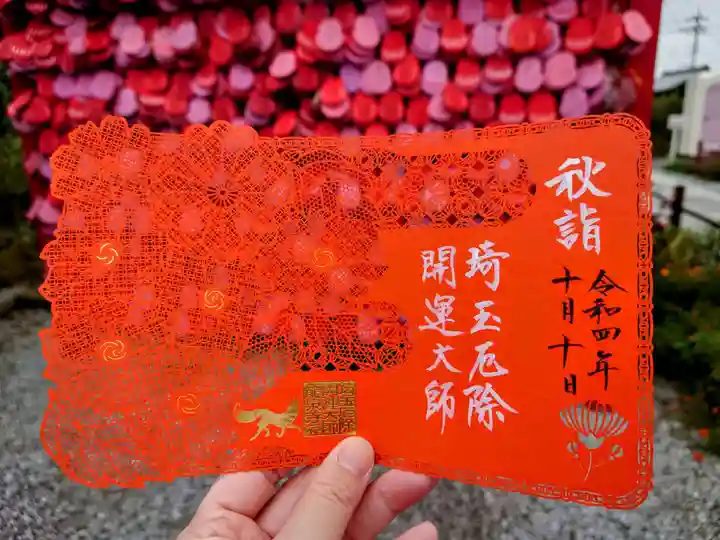 秋詣
令和四年
十月十日
琦玉厄除
開運大師